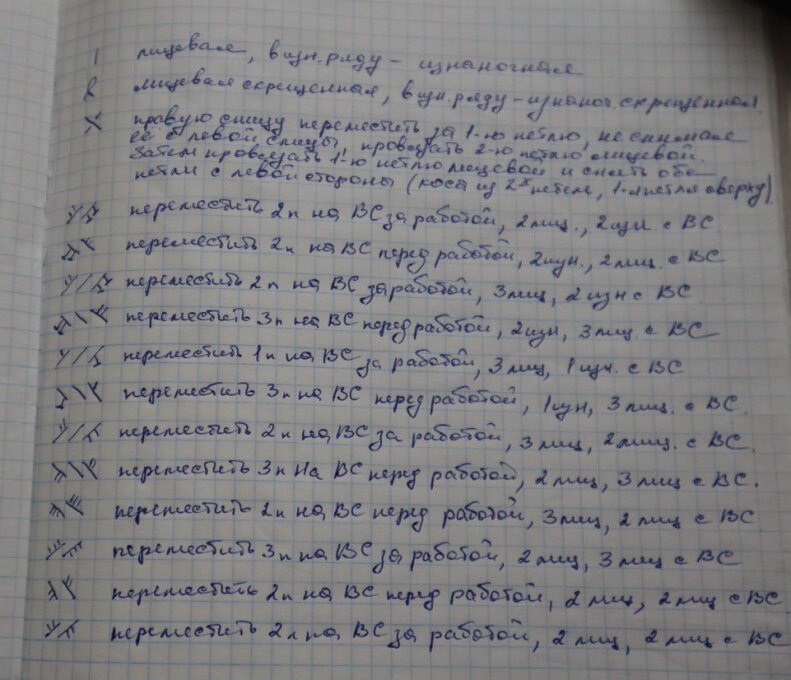 | лицевая, в изн. ряду - изнаночная
лицевая скрещенная, в изн. ряду - изнаноч скрещенная
правую спицу переместить за 1-ю петлю, не снимая
её с левой спицы, провязать 2-ю петлю лицевой.
Затем провязать 1-ю петлю лицевой и снять обе
петли с левой стороны (коса из 2х петель, 1-я петля сверху)
переместить 2п на ВС за работой, 2лиц., 2изн. с ВС
переместить 2п на ВС перед работой, 2изн., 2лиц. с ВС
переместить 2п на ВС за работой, 3лиц, 2изн с ВС
переместить 3п на ВС перед работой, 2изн, 3лиц. с ВС
переместить 1п на ВС за работой, 3лиц, 1изн. с ВС
переместить 3п на ВС перед работой, 1изн, 3лиц. с ВС
переместить 2п на ВС за работой, 3лиц, 2лиц. с ВС.
переместить 3п на ВС перед работой, 2лиц, 3лиц с ВС.
переместить 2п на ВС перед работой, 3лиц, 2лиц с ВС
переместить 3п на ВС за работой, 2лиц, 3лиц с ВС
переместить 2п на ВС перед работой, 2лиц, 2лиц с ВС
переместить 2п на ВС за работой, 2лиц, 2лиц с ВС